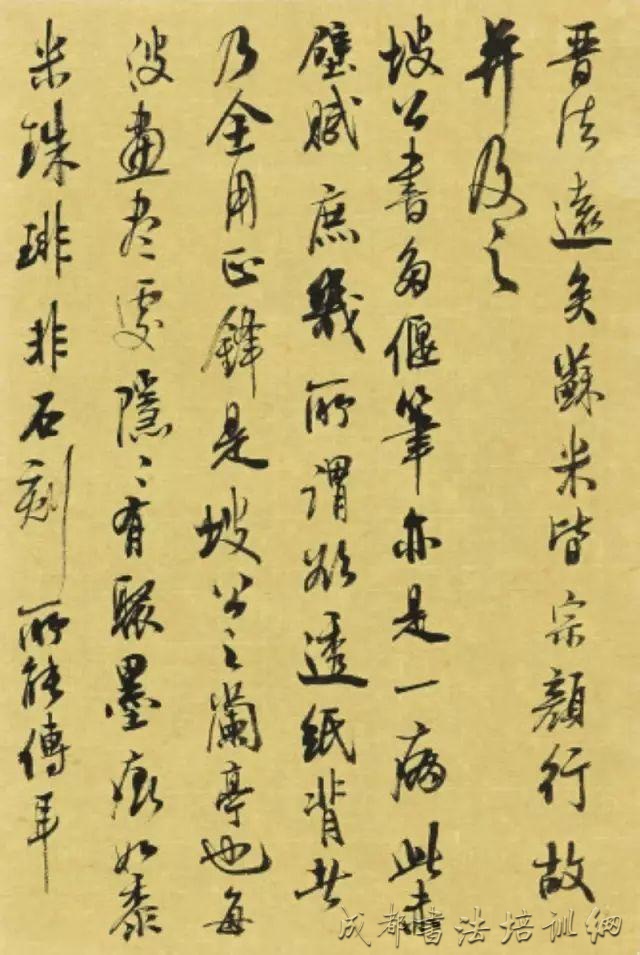 晋法遠矣蘇米皆宗顔行故
并及之
坡公書多偃筆亦是一病此赤
壁賦庶幾所謂欲透紙背者
乃全用正鋒是坡公之蘭亭也每
波畫尽處隱〻有聚墨痕如黍
米珠琲非石刻所能傳耳
成都書法培訓網